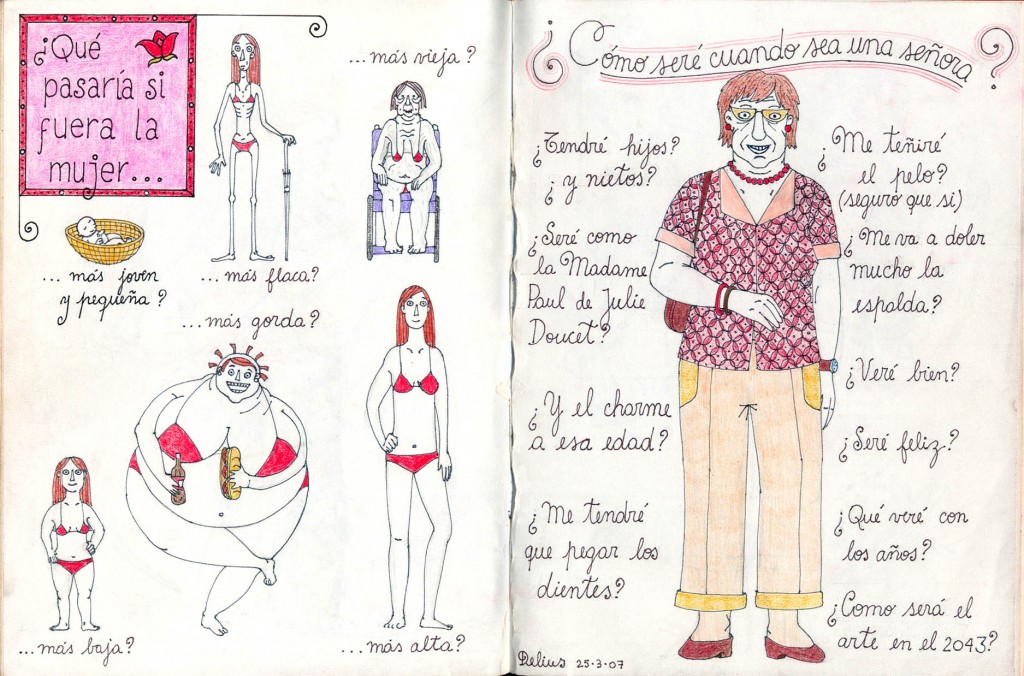 ¿Qué
pasaría si
fuera la
mujer...
...más vieja?
... más joven
y pequeña?
... más flaca?
...más gorda?
...más baja?
...más alta?
¿Cómo seré cuando sea una señora?
¿Tendré hijos?
¿y nietos?
¿Seré como
la Madame
Paul de Julie
Doucet?
¿Y el charme
a esa edad?
¿Me tendré
que pegar los
dientes?
¿Me teñiré
el pelo?
(seguro que si)
¿Me va a doler
mucho la
espalda?
¿Veré bien?
¿Seré feliz?
¿Qué veré con
los años?
¿Como será el
arte en el 2043?
Delius 25-3-07